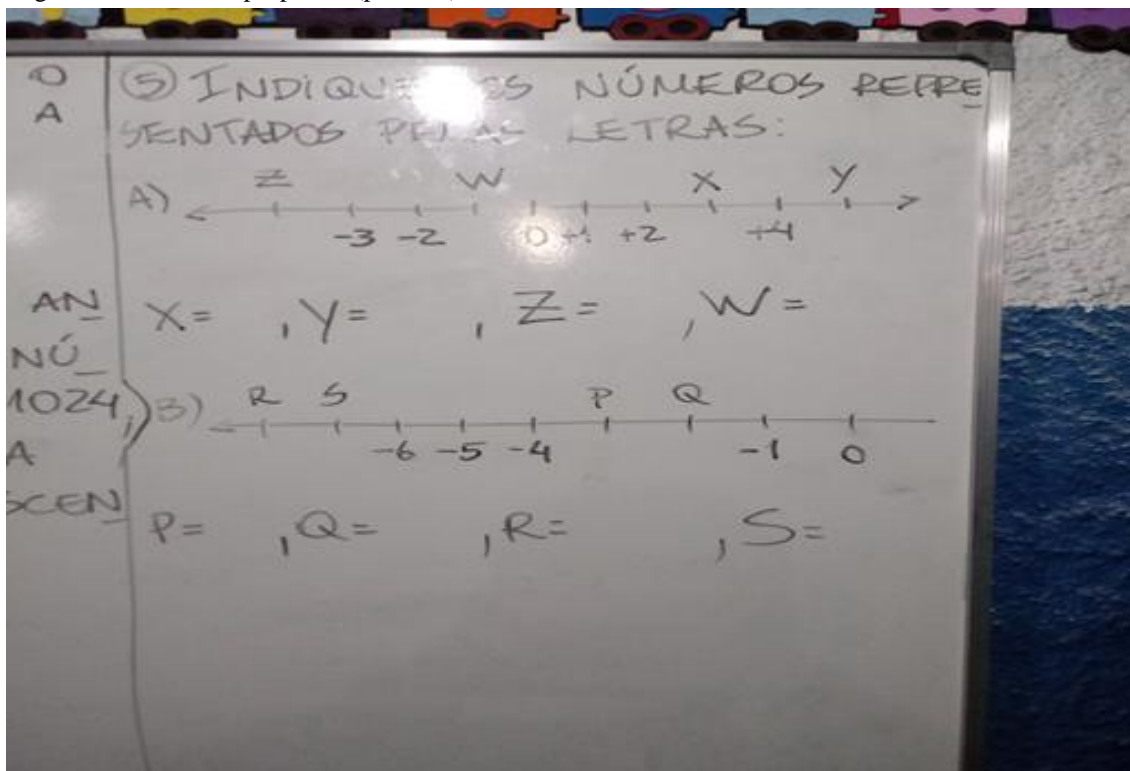 O
A
AN
NÚ
1024,
A
SCEN
⑤ INDIQUE NÚMEROS REPRE
SENTADOS LETRAS:
A) Z W X Y
-3 -2 0 +1 +2 +4
X= , Y= , Z= , W=
B) R S P Q
-6 -5 -4 -1 0
P= , Q= , R= , S=